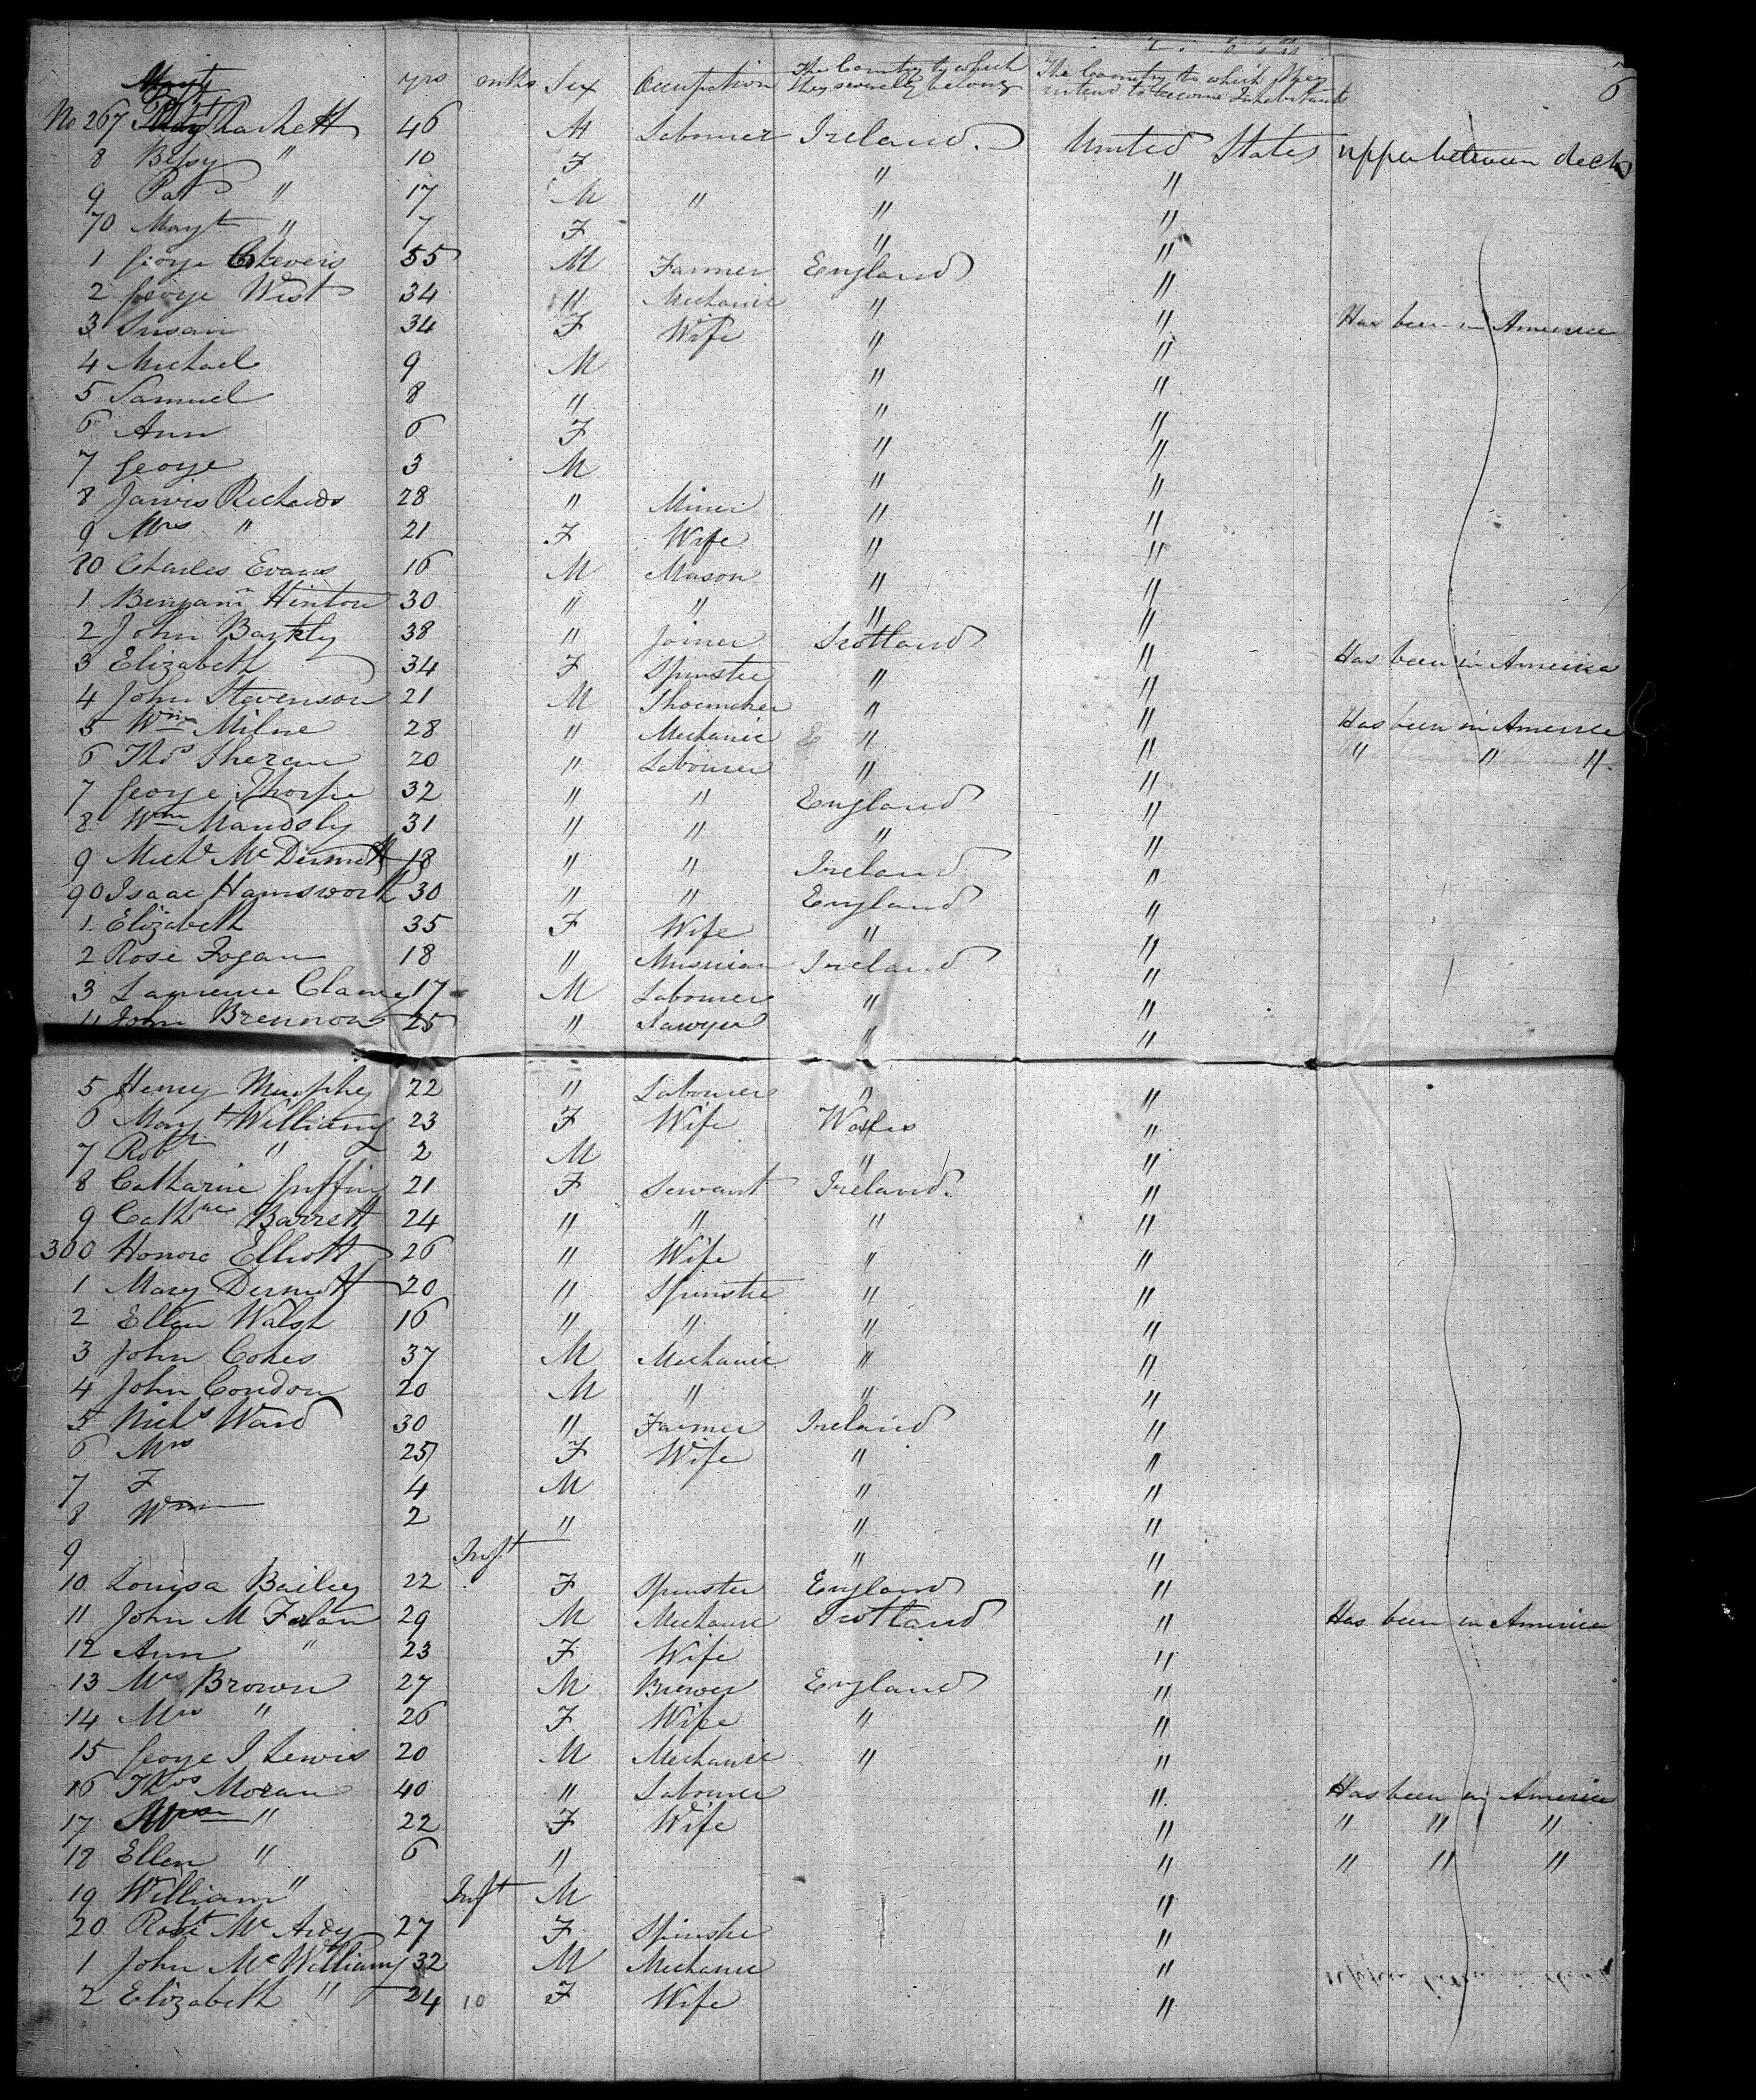 yrs mths Sex Occupation The Country to which they severally belong The Country to which they intend to become Inhabitants 6
No 267 Hackett 46 M Labourer Ireland. United States upper between decks
8 Betsy " 10 F " "
9 Pat " 17 M " " "
70 Mayt " 7 F " "
1 George Clevers 55 M Farmer England "
2 George West 34 " Mechanic " "
3 Susan 34 F Wife " " Has been in America
4 Michael 9 M " "
5 Samuel 8 " " "
6 Ann 6 F " "
7 George 3 M " "
8 Jarvis Richards 28 " Miner " "
9 Mrs " 21 F Wife " "
80 Charles Evans 16 M Mason " "
1 Benjamn Hinton 30 " " " "
2 John Barkly 38 " Joiner Scotland "
3 Elizabeth 34 F Spinster " " Has been in America
4 John Stevenson 21 M Shoemaker " "
5 Wm Milne 28 " Mechanic " " Has been in America
6 Thos Sheran 20 " Labourer " " " " "
7 George Thorpe 32 " " England "
8 Wm Mandsly 31 " " " "
9 Michl McDermott 18 " " Ireland "
90 Isaac Hamsworth 30 " " England "
1 Elizabeth 35 F Wife " "
2 Rose Fogan 18 " Musician Ireland "
3 Lawrence 17 M Labourer " "
4 John Brennon 25 " Sawyer " "
5 Henry Murphy 22 " Labourer " "
6 Mary Williams 23 F Wife Wales "
7 Robt " 2 M " "
8 Catharine Griffin 21 F Servant Ireland. "
9 Cathne Barrett 24 " " " "
300 Honora Elliott 26 " Wife " "
1 Mary Dermott 20 " Spinster " "
2 Ellen Walsh 16 " " " "
3 John Cokes 37 M Mechanic " "
4 John Condon 20 M " " "
5 Nichs Ward 30 " Farmer Ireland "
6 Mrs 25 F Wife " "
7 F 4 M " "
8 Wm 2 " " "
9 Inft " "
10 Louisa Bailey 22 F Spinster England "
11 John M Falan 29 M Mechanic Scotland " Has been in America
12 Ann " 23 F Wife "
13 Mr Brown 27 M Brewer England "
14 Mrs " 26 F Wife " "
15 George J Lewis 20 M Mechanic " "
16 Thos Moran 40 " Labourer " Has been in America
17 " 22 F Wife " " " "
18 Ellen " 6 " " " " "
19 William " Inft M "
20 Mc 27 F Spinster "
1 John McWilliams 32 M Mechanic "
2 Elizabeth " 24 10 F Wife "